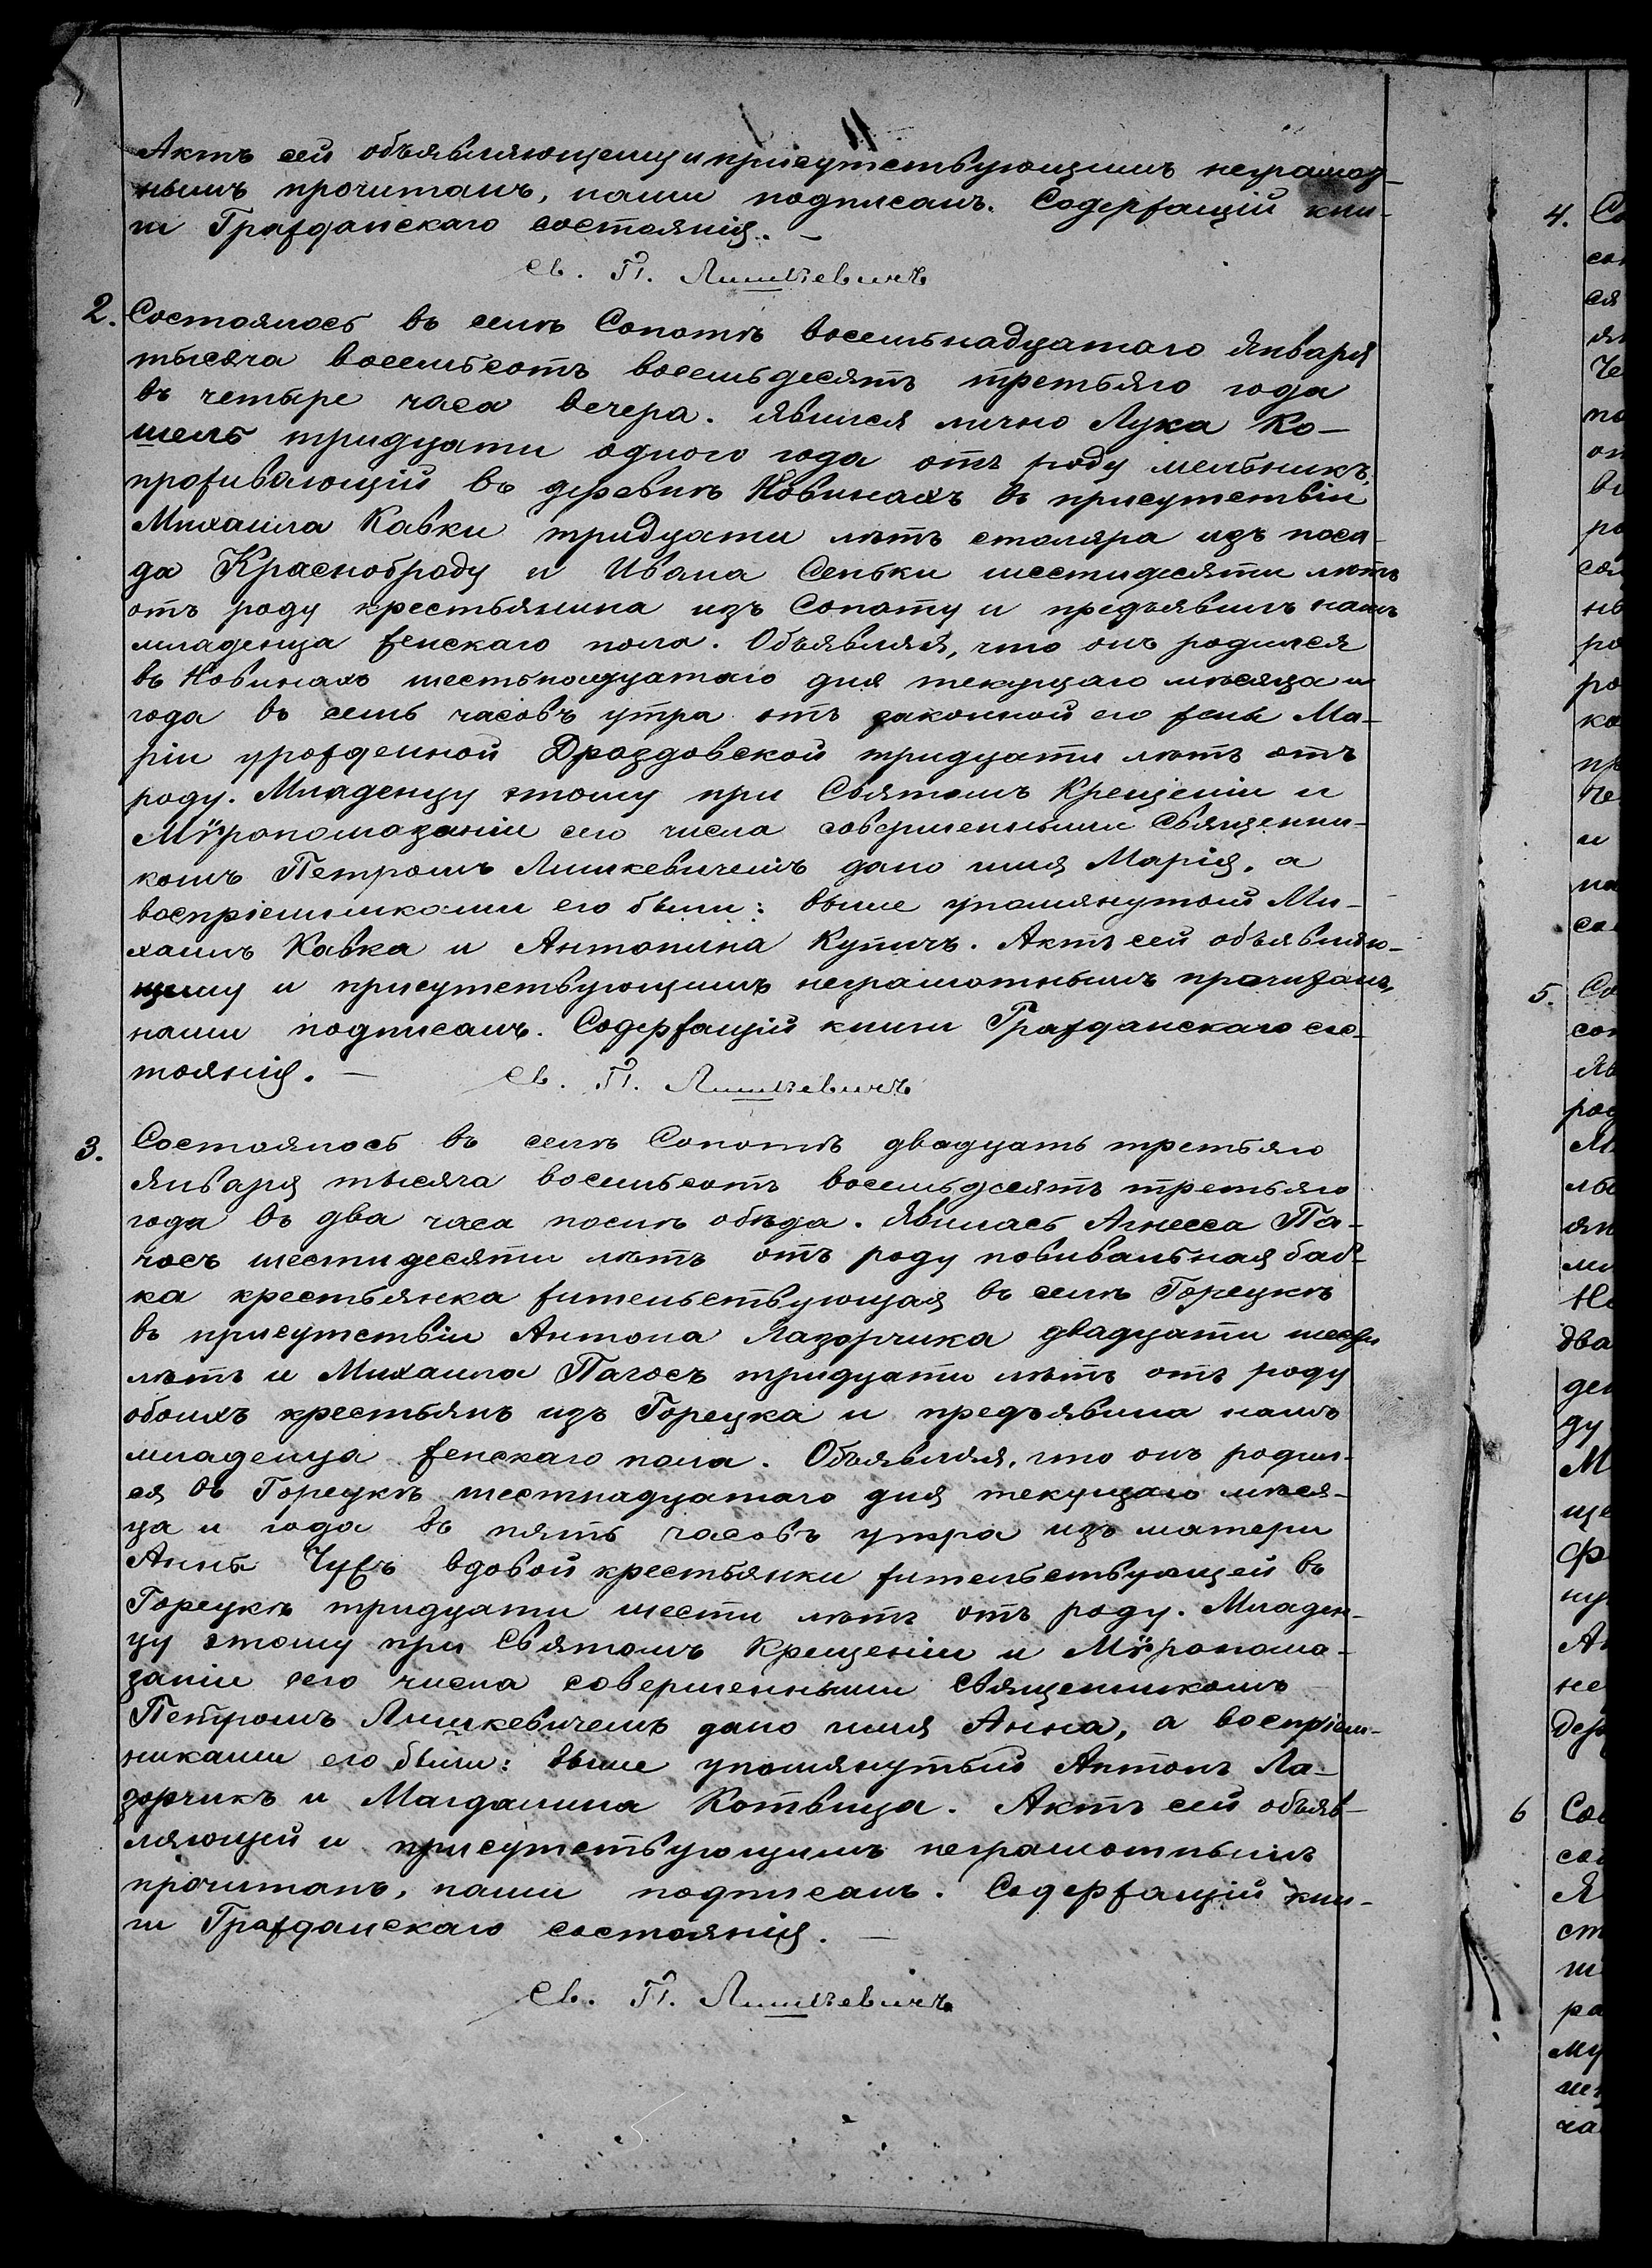 Актъ сей объявляющему и присутствующимъ неграмот-
нымъ прочитанъ, нами подписанъ. Содержащій кни-
ги Гражданскаго состоянія. —
Св. П. Лишкевичъ
2. Состоялось въ селѣ Сопотѣ восемьнадцатаго Января
тысяча восемьсотъ восемьдесятъ третьяго года
въ четыре часа вечера. Явился лично Лука Ко-
шель тридцати одного года отъ роду мельникъ,
проживающій въ деревнѣ Новинахъ въ присутствіи
Михаила Кавки тридцати лѣтъ столяра изъ поса-
да Красноброду и Ивана Сеньки шестидесяти лѣтъ
отъ роду крестьянина изъ Сопоту и предъявилъ намъ
младенца женскаго пола. Объявляя, что онъ родился
въ Новинахъ шестьнадцатаго дня текущаго мѣсяца и
года въ семь часовъ утра отъ законной его жены Ма-
ріи урожденной Дроздовской тридцати лѣтъ отъ
роду. Младенцу этому при Святомъ Крещеніи и
Мѵропомазаніи сего числа совершенными Священни-
комъ Петромъ Лишкевичемъ дано имя Марія, а
воспріемниками его были: выше упомянутый Ми-
хаилъ Кавка и Антонина Купичъ. Актъ сей объявляю-
щему и присутствующимъ неграмотнымъ прочитанъ,
нами подписанъ. Содержащій книги Гражданскаго сос-
тоянія. —
Св. П. Лишкевичъ
3. Состоялось въ селѣ Сопотѣ двадцать третьяго
Января тысяча восемьсотъ восемьдесятъ третьяго
года въ два часа послѣ обѣда. Явилась Агнесса Па-
чосъ шестидесяти лѣтъ отъ роду повивальная баб-
ка крестьянка жительствующая въ селѣ Горецкѣ
въ присутствіи Антона Лазорчика двадцати шести
лѣтъ и Михаила Пачосъ тридцати лѣтъ отъ роду
обоихъ крестьянъ изъ Горецка и предъявила намъ
младенца женскаго пола. Объявляя, что онъ родил-
ся въ Горецкѣ шестнадцатаго дня текущаго мѣся-
ца и года въ пять часовъ утра изъ матери
Анны вдовой крестьянки жительствующей въ
Горецкѣ тридцати шести лѣтъ отъ роду. Младен-
цу этому при Святомъ Крещеніи и Мѵропома-
заніи сего числа совершенными Священникомъ
Петромъ Лишкевичемъ дано имя Анна, а воспріем-
никами его были: выше упомянутый Антонъ Ла-
зорчикъ и Магдалина Котвица. Актъ сей объяв-
ляющей и присутствующимъ неграмотнымъ
прочитанъ, нами подписанъ. Содержащій кни-
ги Гражданскаго состоянія. —
Св. П. Лишкевичъ
4.
5.
6